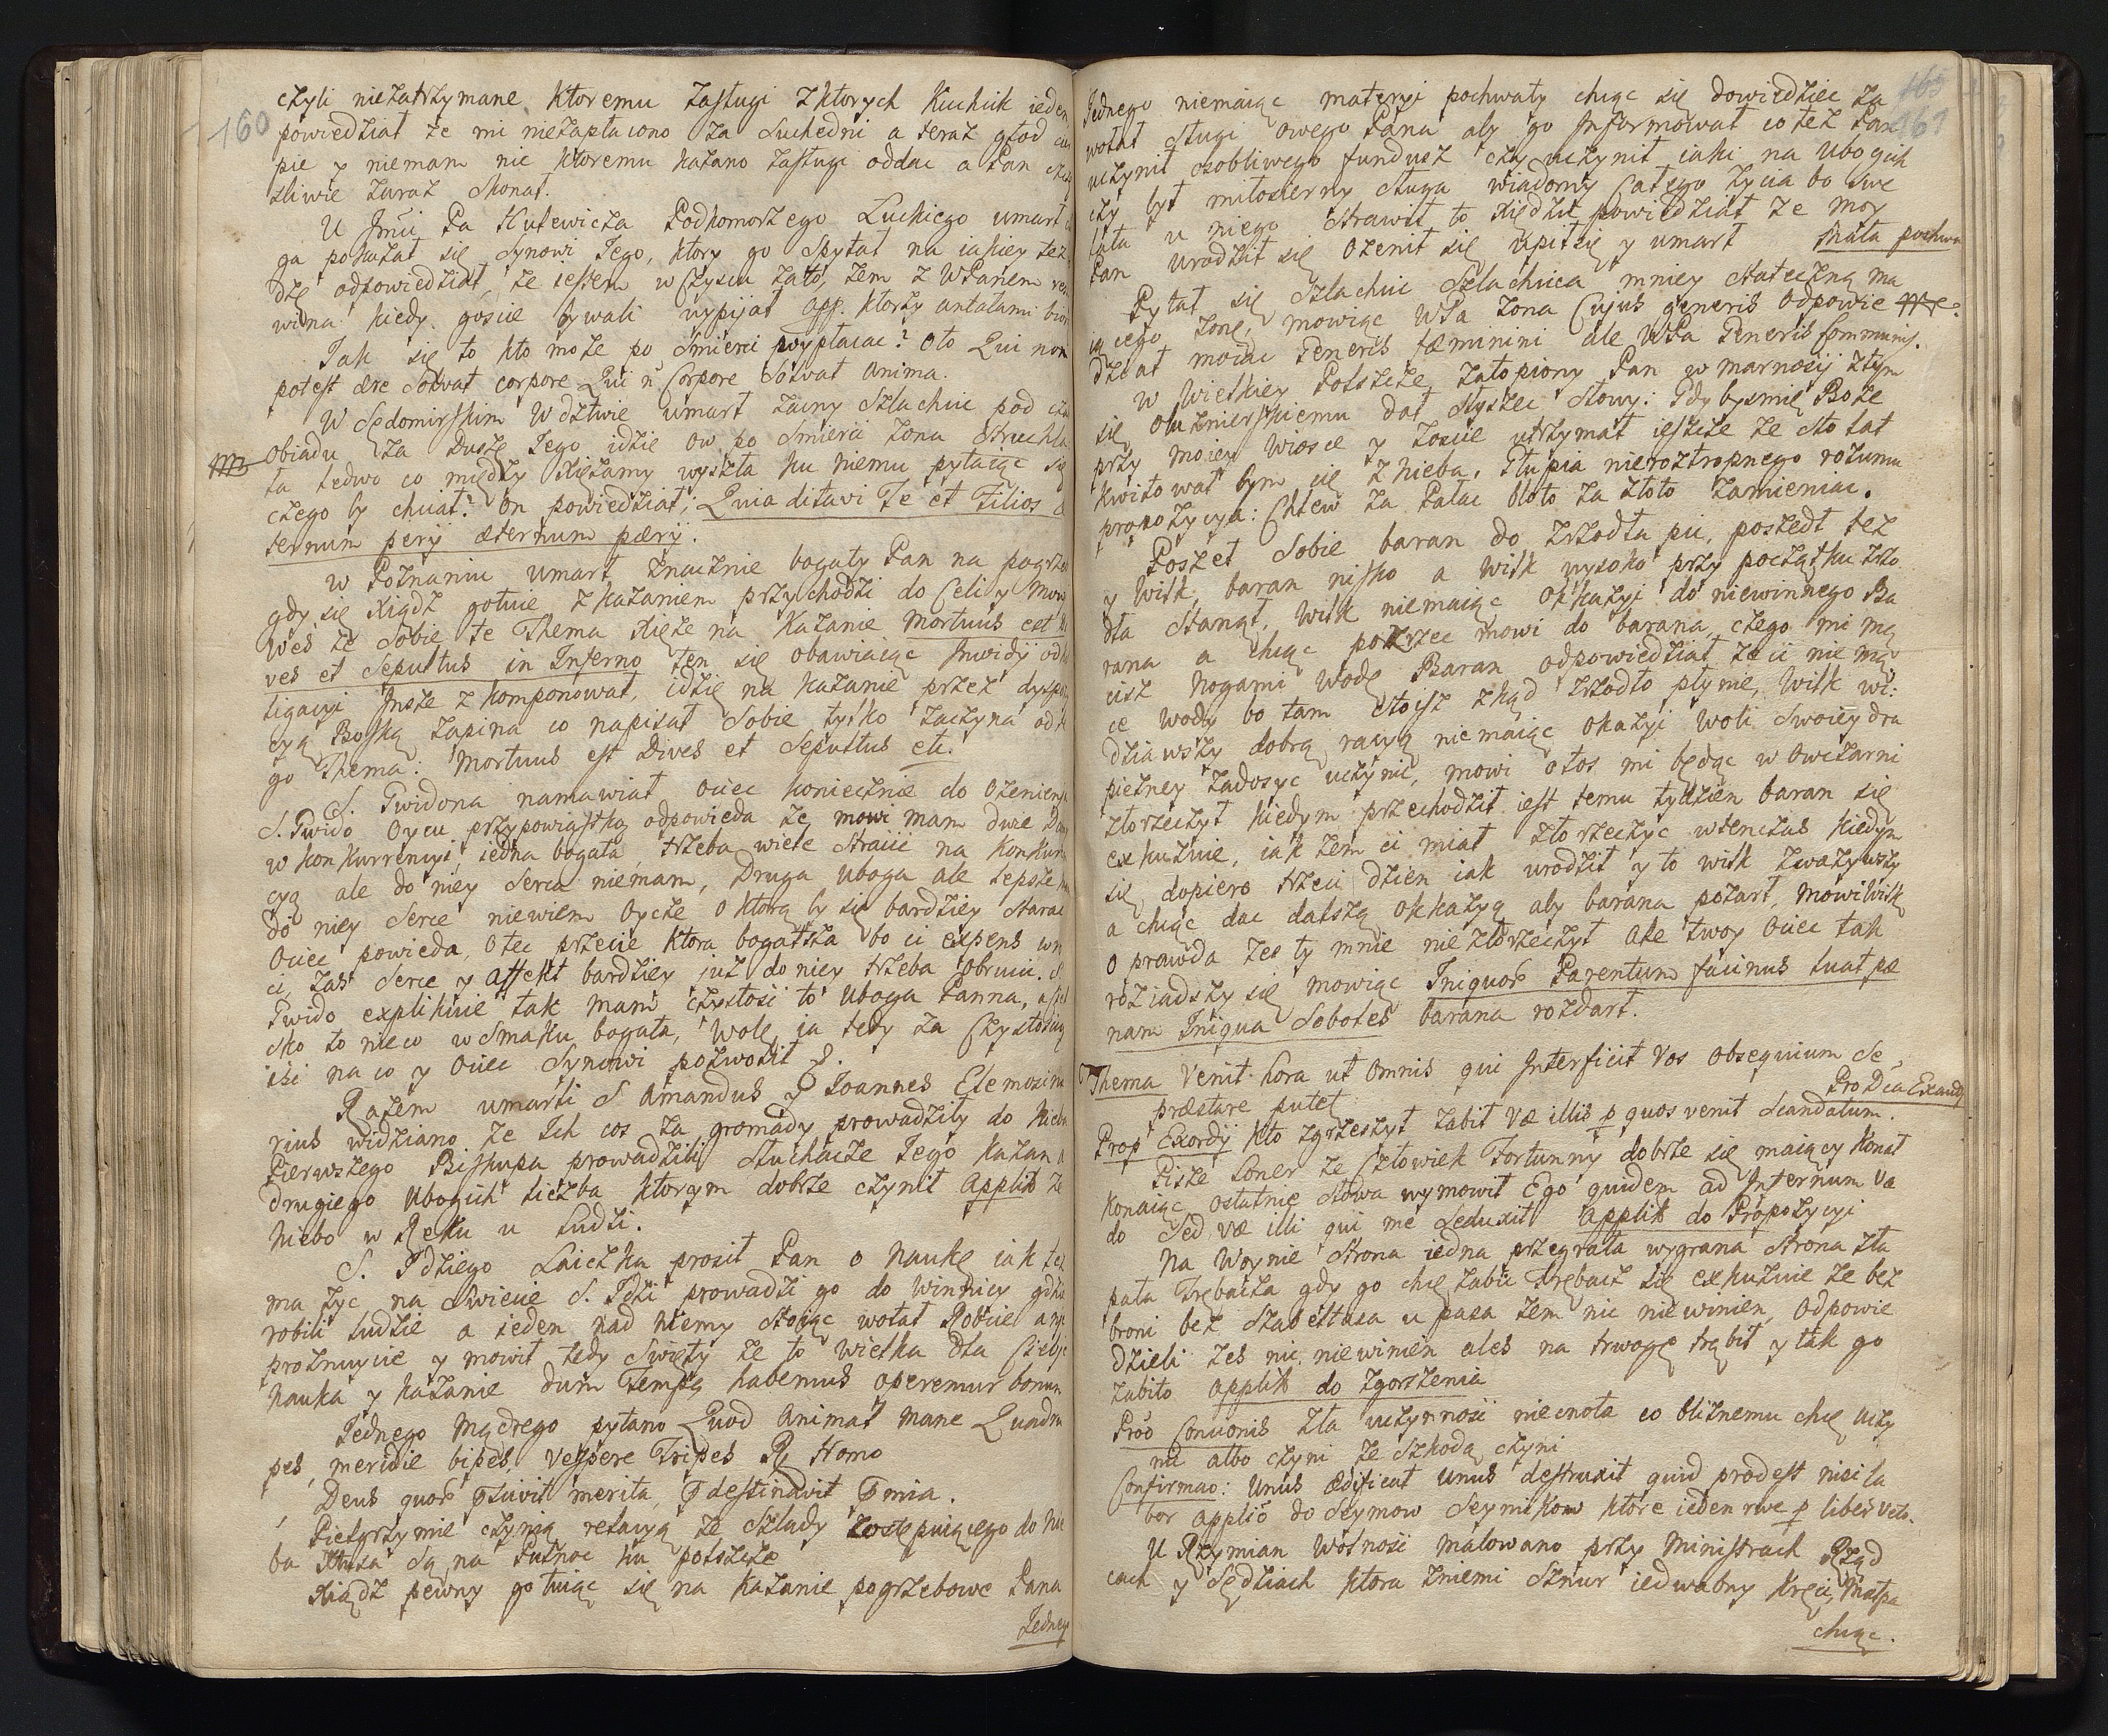 160
czyli niezatrzymane ktoremu zasługi z ktorych Kuchcik ieden
powiedział że mi niezapłacono za Suchedni a teraz głod
pie y niemam nic ktoremu kazano zasługi oddac a Pan
sliwie zaraz skonał.
U Jmci Pa Hulewicza Podkomorzego Łuckiego umarł
ga pokazał się synowi Jego, ktory go spytał na iakiey
dze odpowiedział, że iestem w czyscu zato, żem z WPanem
wina kiedy goscie bywali wypijał app. ktorzy antałami
Jak się to kto może po smierci wypłacac? Oto Qui non
potest ære solvat corpore Qui n Corpore solvat anima.
W Sędomirskim Wdztwie umarł zacny Szlachcic pod
obiadu za Dusze Jego idzie ow po smierci żona struchla
ła ledwo co między Xiężamy wyszła ku niemu pytaiąc się
czego by chciał? On powiedział, Quia ditavi Te et Filios
ternum perij æternum perij.
w Poznaniu umarł znacznie bogaty Pan na pogrzeb
gdy się Xiądz gotuie z kazaniem przychodzi do Celi y
Weź że sobie te Thema Xięże na Kazanie Mortuus est
ves et Sepultus in Inferno ten się obawiaiąc Inwidij
ligacyi Insze z komponował, idzie na kazanie przez
cyą Boską zapina co napisał sobie tylko zaczyna od
go Thema: Mortuus est Dives et Sepultus etc.
S. Gwidona namawiał Ociec koniecznie do Ożenienia
S. Gwido Oycu przypowiastką odpowieda że mowi mam dwie
w konkurrencyi iedna bogata, trzeba wiele stracic na
cyą ale do niey serca niemam, Druga Uboga ale lepsze
do niey serce niewiem Oycze o ktorą by się bardziey starac
Ociec powieda, O tec przecie ktora bogatsza bo ci expens
ci zas serce y affekt bardziey juz do niey trzeba obrucic. S.
Gwido explikuie tak mam czystosc to Uboga Panna,
sko to nieco w smaku bogata, Wolę ia tedy za czystoscią
isc na co y Ociec Synowi pozwolił
Razem umarli S Amandus y Joannes Elemozina
rius widziano że Ich cos za gromady prowadziły do Nieba
Pierwszego Biskupa prowadzili Słuchacze Jego Kazan
drugiego Ubogich liczba ktorym dobrze czynił applik że
Niebo w Ręku u Ludzi.
S. Idziego Laiczka prosił Pan o Naukę iak
ma życ na Swiecie S. Idzi prowadzi go do Winnicy gdzie
robili Ludzie a ieden nad niemy stoiąc wołał Robcie a nie
proznuycie y mowił tedy Swięty że to wielka dla Ciebie
Nauka y kazanie dum Tempą habemus operemur bonum
Jednego Mądrego pytano Quod Animał mane Quadru
pes, meridie bipes, Vespere Tripes R. Homo
Deus quos
Pielgrzymie czynią relacyą że Szlady zostepuiącego do Nie
ba Xtusa są na Pułnoc ku polszcze
Xiądz pewny gotuiąc się na kazanie pogrzebowe Pana
Jednego
165
161
Jednego niemaiąc materyi pochwały chcąc się dowiedziec za
wołał sługi owego Pana aby go Informował co też Pan
uczynił osobliwego fundusz czy uczynił iaki na Ubogich
czy był miłosierny sługa wiadomy całego zycia bo swe
lata u niego strawił to Xiędzu powiedział że moy
Pan urodził się ożenił się upił się y umarł Mała pochwa
Pytał się Szlachcic Szlachcica mniey stateczną ma
iącego żonę, mowiąc WPa żona Cujus generis Odpowie
dział moia Generis fæminini ale WPa Generis Communis.
w Wielkiey Polszcze zatopiony Pan w marnosci ztym
się ołtżnierskiemu dał słyszec słowy: Gdybysmię Boże
przy moiey wiosce y Zosiie utrzymał ieszcze ze sto lat
kwitował bym się z Nieba. Głupia nieroztropnego rozumu
propozycya: Chlew za Pałac błoto za złoto zamieniac.
Poszet sobie baran do zrzodła pic, poszedł też
y Wilk, baran nisko a Wilk wysoko przy początku zrzo
dła stanął, Wilk niemaiąc Okkazyi do niewinnego Ba
rana a chcąc pozrzec mowi do barana, czego mi mą
cisz nogami wodę Baran odpowiedział że ci nie mą
ce wody bo tam stoisz zkąd zrzodło płynie, Wilk wi:
dziawszy dobrą racyą niemaiąc okazyi woli swoiey dra
pieżney zadosyc uczynic, mowi otos mi będąc w Owczarni
złorzeczył kiedym przechodził iest temu tydzien baran się
exkuzuie, iak żem ci miał złorzeczyc wtenczas kiedym
się dopiero trzeci dzien iak urodził y to wilk zwazywszy
a chcąc dac dalszą okkazyą aby barana pożarł, mowi Wilk
o prawda żes ty mnie nie złorzeczył ale twoy Ociec tak
roziadszy się mowiąc Iniquos Parentum facinus luat pæ
nam Iniqua Soboles barana rozdarł.
Thema Venit hora ut omnis qui Interficit Vos Obsequium Se
præstare putet
Pro Dca Exaudi
Prop Exordij Kto zgrzeszył zabił væ illis p quos venit scandalum.
Pisze Loner że człowiek Fortunny dobrze się maiący konał
konaiąc ostatnie słowa wymowił Ego quidem ad Internum va
do sed væ illi qui me seduxit applik do Propozycyi
Na Woynie strona iedna przegrała wygrana strona zła
pała Trębacza gdy go chcę zabic Trębacz się exkuzuie że bez
broni bez szabeltasa u pasa żem nic niewinien, Odpowie
dzieli żes nic niewinien ales na trwogę trąbił y tak go
zabito applik do zgorszenia
Proö Concionis zła uczynnosc niecnota co bliznemu chcę uczy
nic albo czyni że szkodą czyni
Confirmao: Unus ædificat Unus destruxit quid prodest nisi la
bor applic do Seymow Seymikow ktore ieden rwe p liber Veto.
U Rzymian Wolnosc malowano przy Ministrach Rząd
cach y sędziach ktora zniemi sznur iedwabny kręci, Małpa
chcąc.